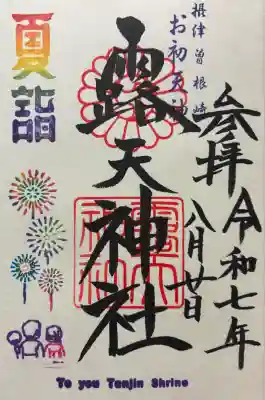 参拝 令和七年
八月廿日
摂津 曽根崎
お初天神
露天神社
夏詣
To you Tenjin Shrine